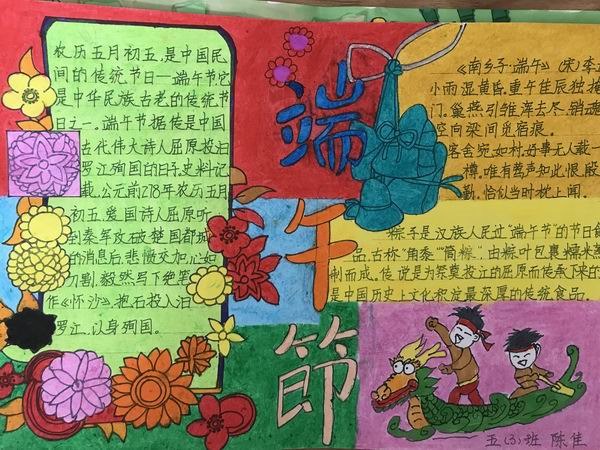 农历五月初五,是中国民
间的传统节日—端午节它
是中华民族古老的传统节
日之一。端午节据传是中国
古代伟大诗人屈原投汨
罗江殉国的日子,史料记
载,公元前278年农历五月
初五,爱国诗人屈原听
到秦军攻破楚国都城
的消息后,悲愤交加,心如
刀割,毅然写下绝笔
作《怀沙》,抱石投入汨
罗江,以身殉国。
端
午
節
《南乡子·端午》(宋)李
小雨湿黄昏,重午佳辰独掩
门。巢燕引雏浑去尽,销魂
空向梁间觅宿痕。
客舍宛如村,好事无人载一
樽,唯有莺声知此恨,殷
勤,恰似当时枕上闻。
粽子是汉族人民过"端午节"的节日
品,古称"角黍""筒粽",由粽叶包裹糯米
制而成,传说是为祭奠投江的屈原而传承下来的
是中国历史上文化积淀最深厚的传统食品。
五(3)班 陈佳